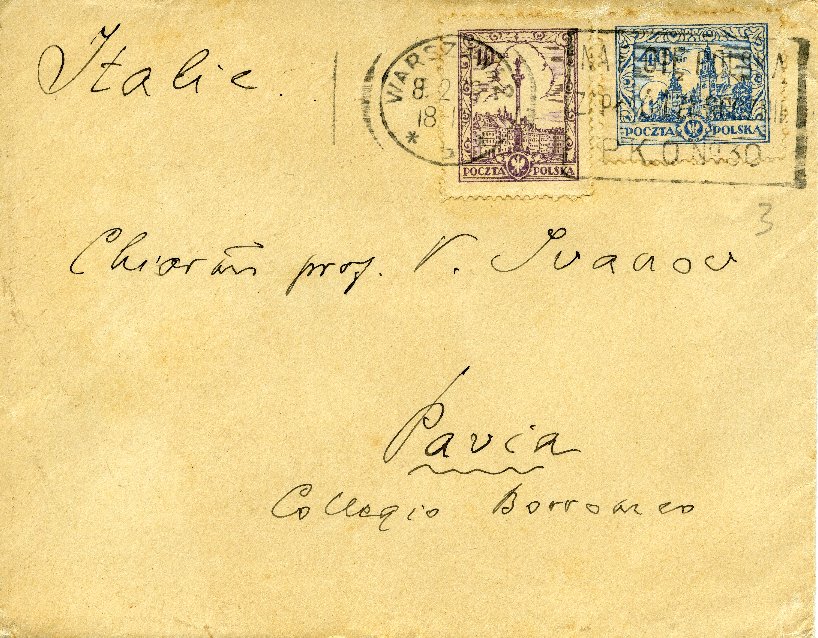 Italie
WARSZAWA
8. 2
18
POCZTA POLSKA
POCZTA POLSKA
NA POLSKA
P.K.O. № 30
3
Chiar̄m̄ prof. V. Ivanov
Pavia
Collegio Borromeo